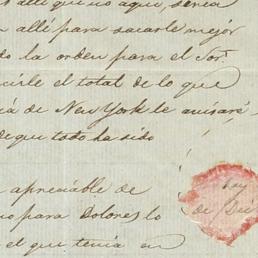 allí que no aquí, sería
allá para sacarle mejor
do la orden para el Sor.
cirle el total de lo que
rá de New York le avisaré
de que todo ha sido
apreciable de hoy
para Dolores lo de Di
el que tenía en